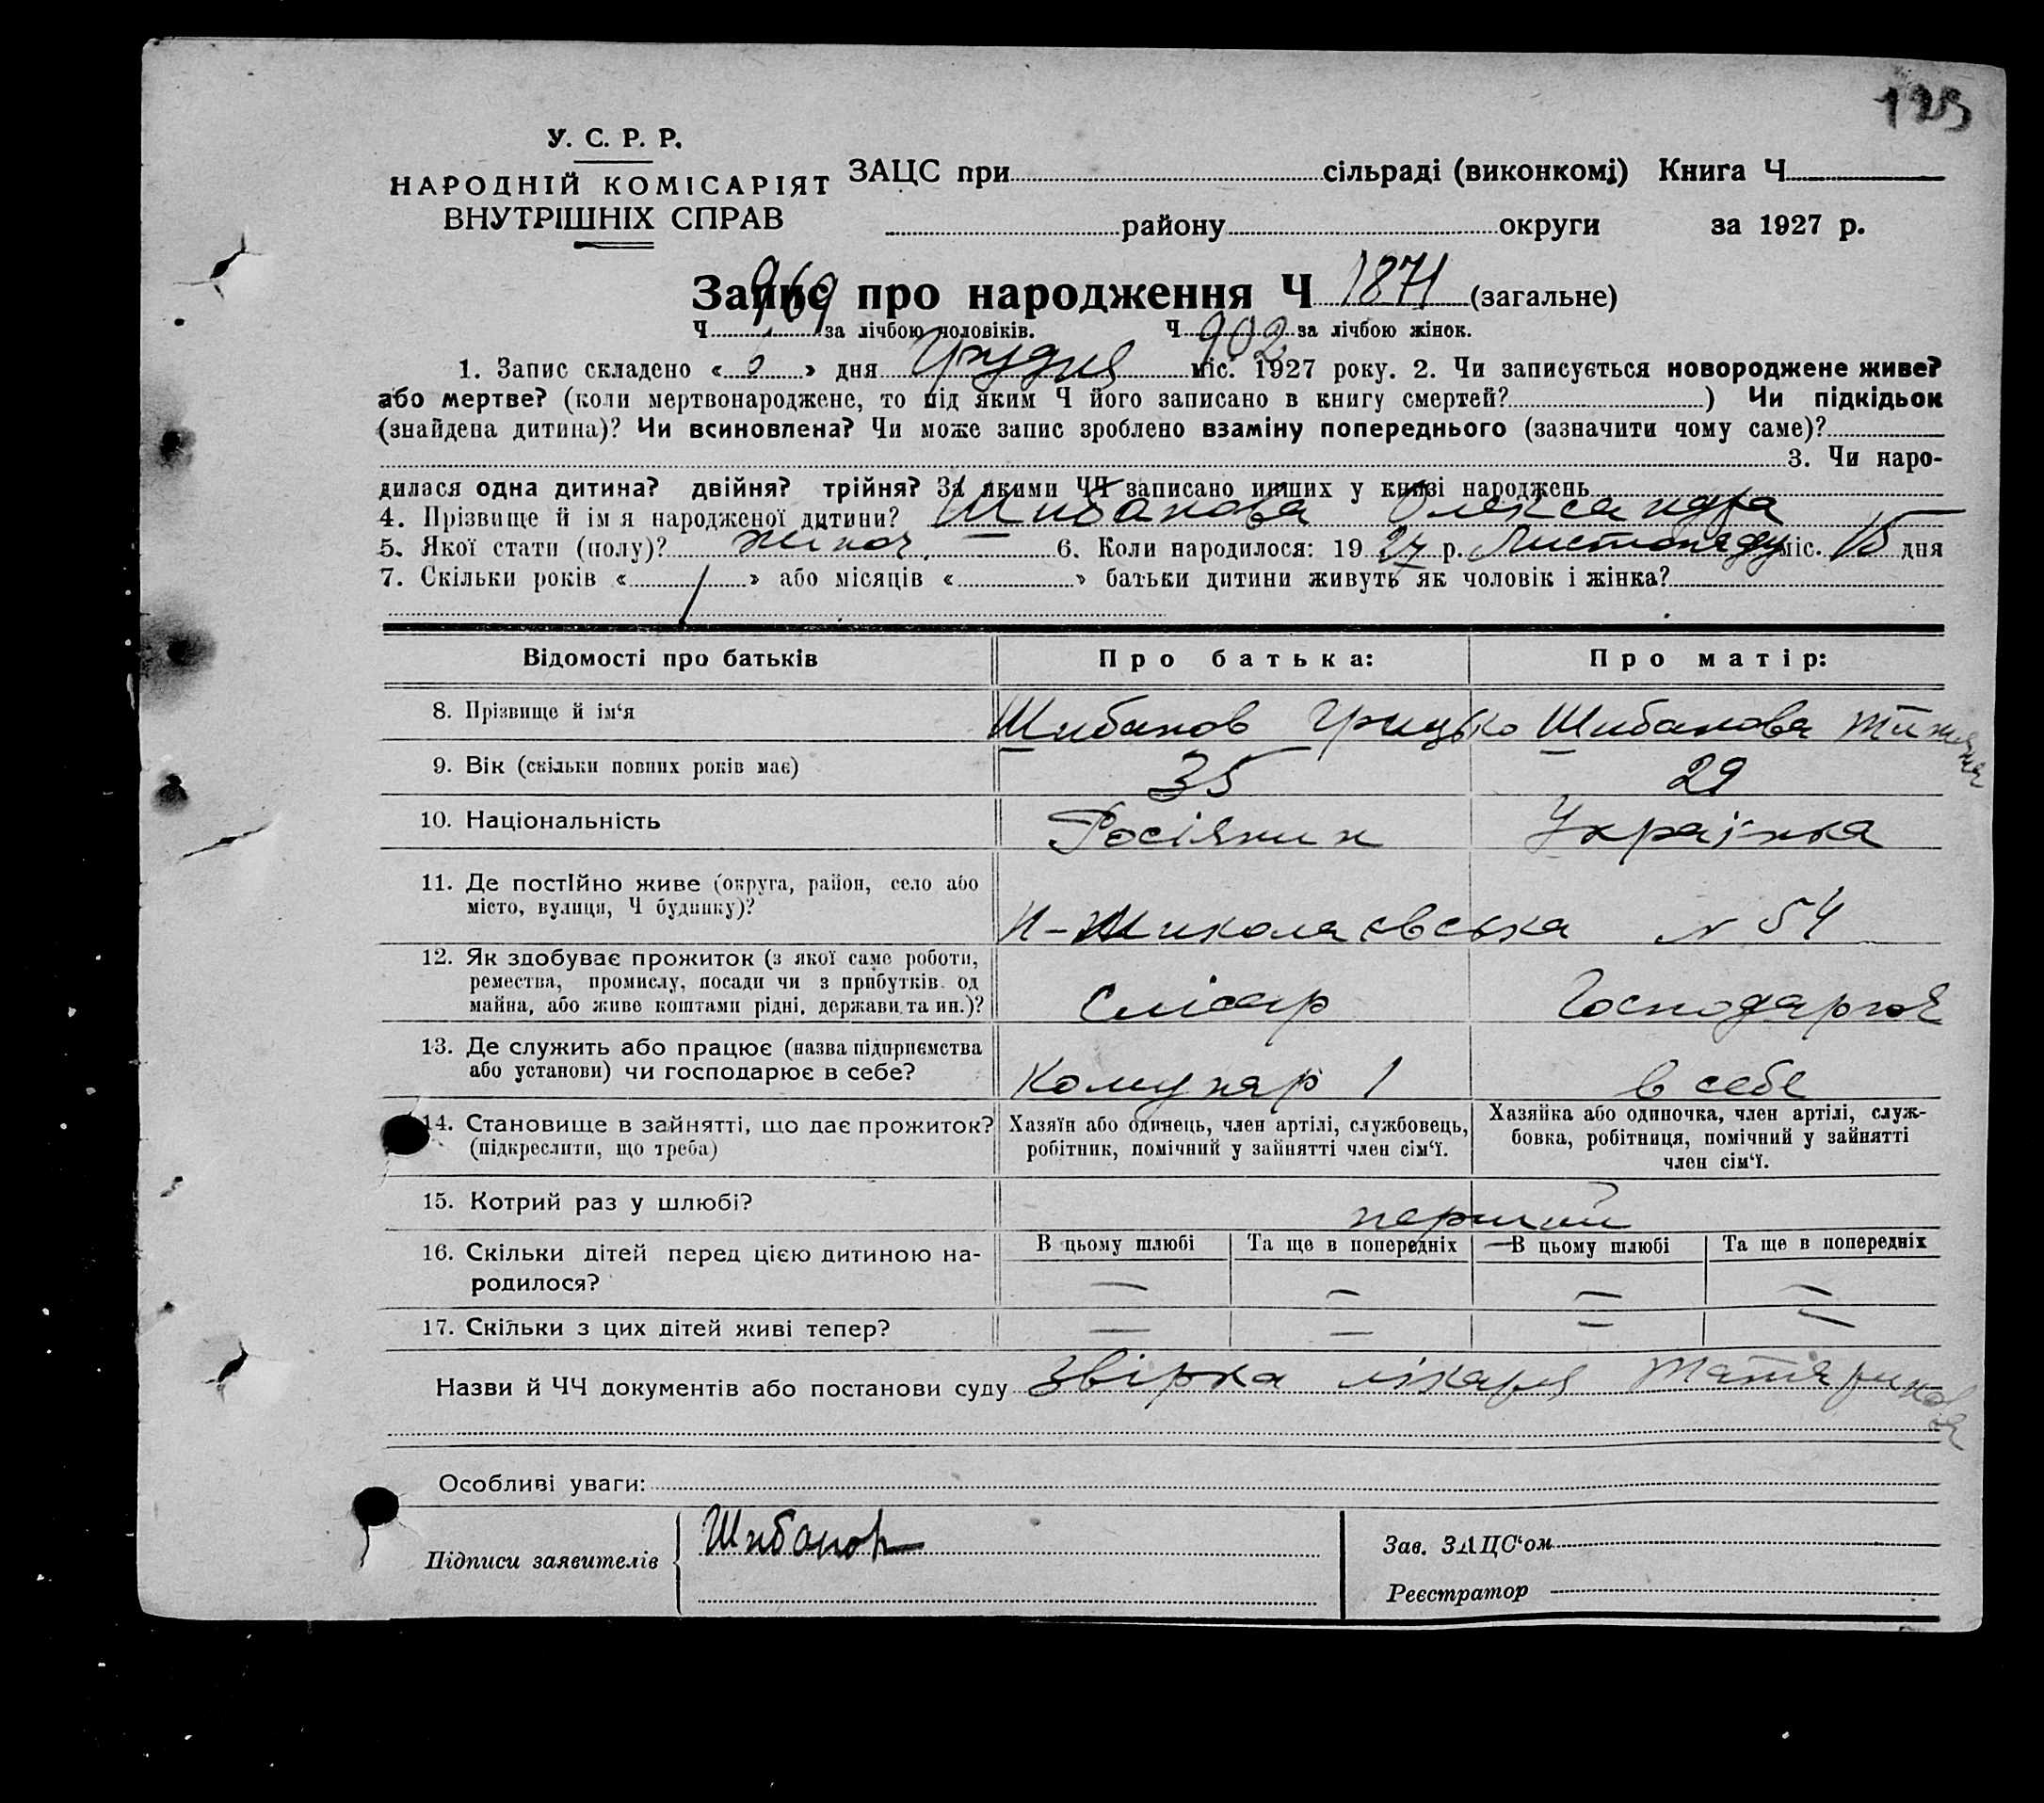 125
У. С. Р. Р.
НАРОДНІЙ КОМІСАРІЯТ
ВНУТРІШНІХ СПРАВ
ЗАЦС при сільраді (виконкомі) Книга Ч
району округи за 1927 р.
Запис про народження Ч 1871 (загальне)
Ч 969 за лічбою чоловіків. Ч 902 за лічбою жінок.
1. Запис складено « 6 » дня Грудня міс. 1927 року. 2. Чи записується новороджене живе?
або мертве? (коли мертвонароджене, то під яким Ч його записано в книгу смертей? ) Чи підкідьок
(знайдена дитина)? Чи всиновлена? Чи може запис зроблено взаміну попереднього (зазначити чому саме)?
3. Чи наро-
дилася одна дитина? двійня? трійня? За якими ЧЧ записано инших у книзі народжень
4. Прізвище й ім я народженої дитини? Шибанова Олександра
5. Якої стати (полу)? жіноч. 6. Коли народилося: 19 27 р. Листопаду міс. 15 дня
7. Скільки років « 1 » або місяців « » батьки дитини живуть як чоловік і жінка?
Відомості про батьків Про батька: Про матір:
8. Прізвище й ім‘я Шибанов Грицько Шибанова
9. Вік (скільки повних років має) 35 29
10. Національність Росіянин Українка
11. Де постІйно живе (округа, район, село або
місто, вулиця, Ч будинку)?
Н-Миколаєвська № 54
12. Як здобуває прожиток (з якої саме роботи,
ремества, промислу, посади чи з прибутків од
майна, або живе коштами рідні, держави та ин.)?
Слюсар Господарює
13. Де служить або працює (назва підприємства
або установи) чи господарює в себе?
Комунар 1 в себе
14. Становище в зайнятті, що дає прожиток?
(підкреслити, що треба)
Хазяїн або одинець, член артілі, службовець,
робітник, помічний у зайнятті член сім‘ї.
Хазяйка або одиночка, член артілі, служ-
бовка, робітниця, помічний у зайнятті
член сім‘ї.
15. Котрий раз у шлюбі? перший
16. Скільки дітей перед цією дитиною на-
родилося?
В цьому шлюбі Та ще в попередніх В цьому шлюбі Та ще в попередніх
— — — —
17. Скільки з цих дітей живі тепер? — — — —
Назви й ЧЧ документів або постанови суду звірка лікаря
Особливі уваги:
Підписи заявителів Шибанов
Зав. ЗАЦС‘ом
Реєстратор